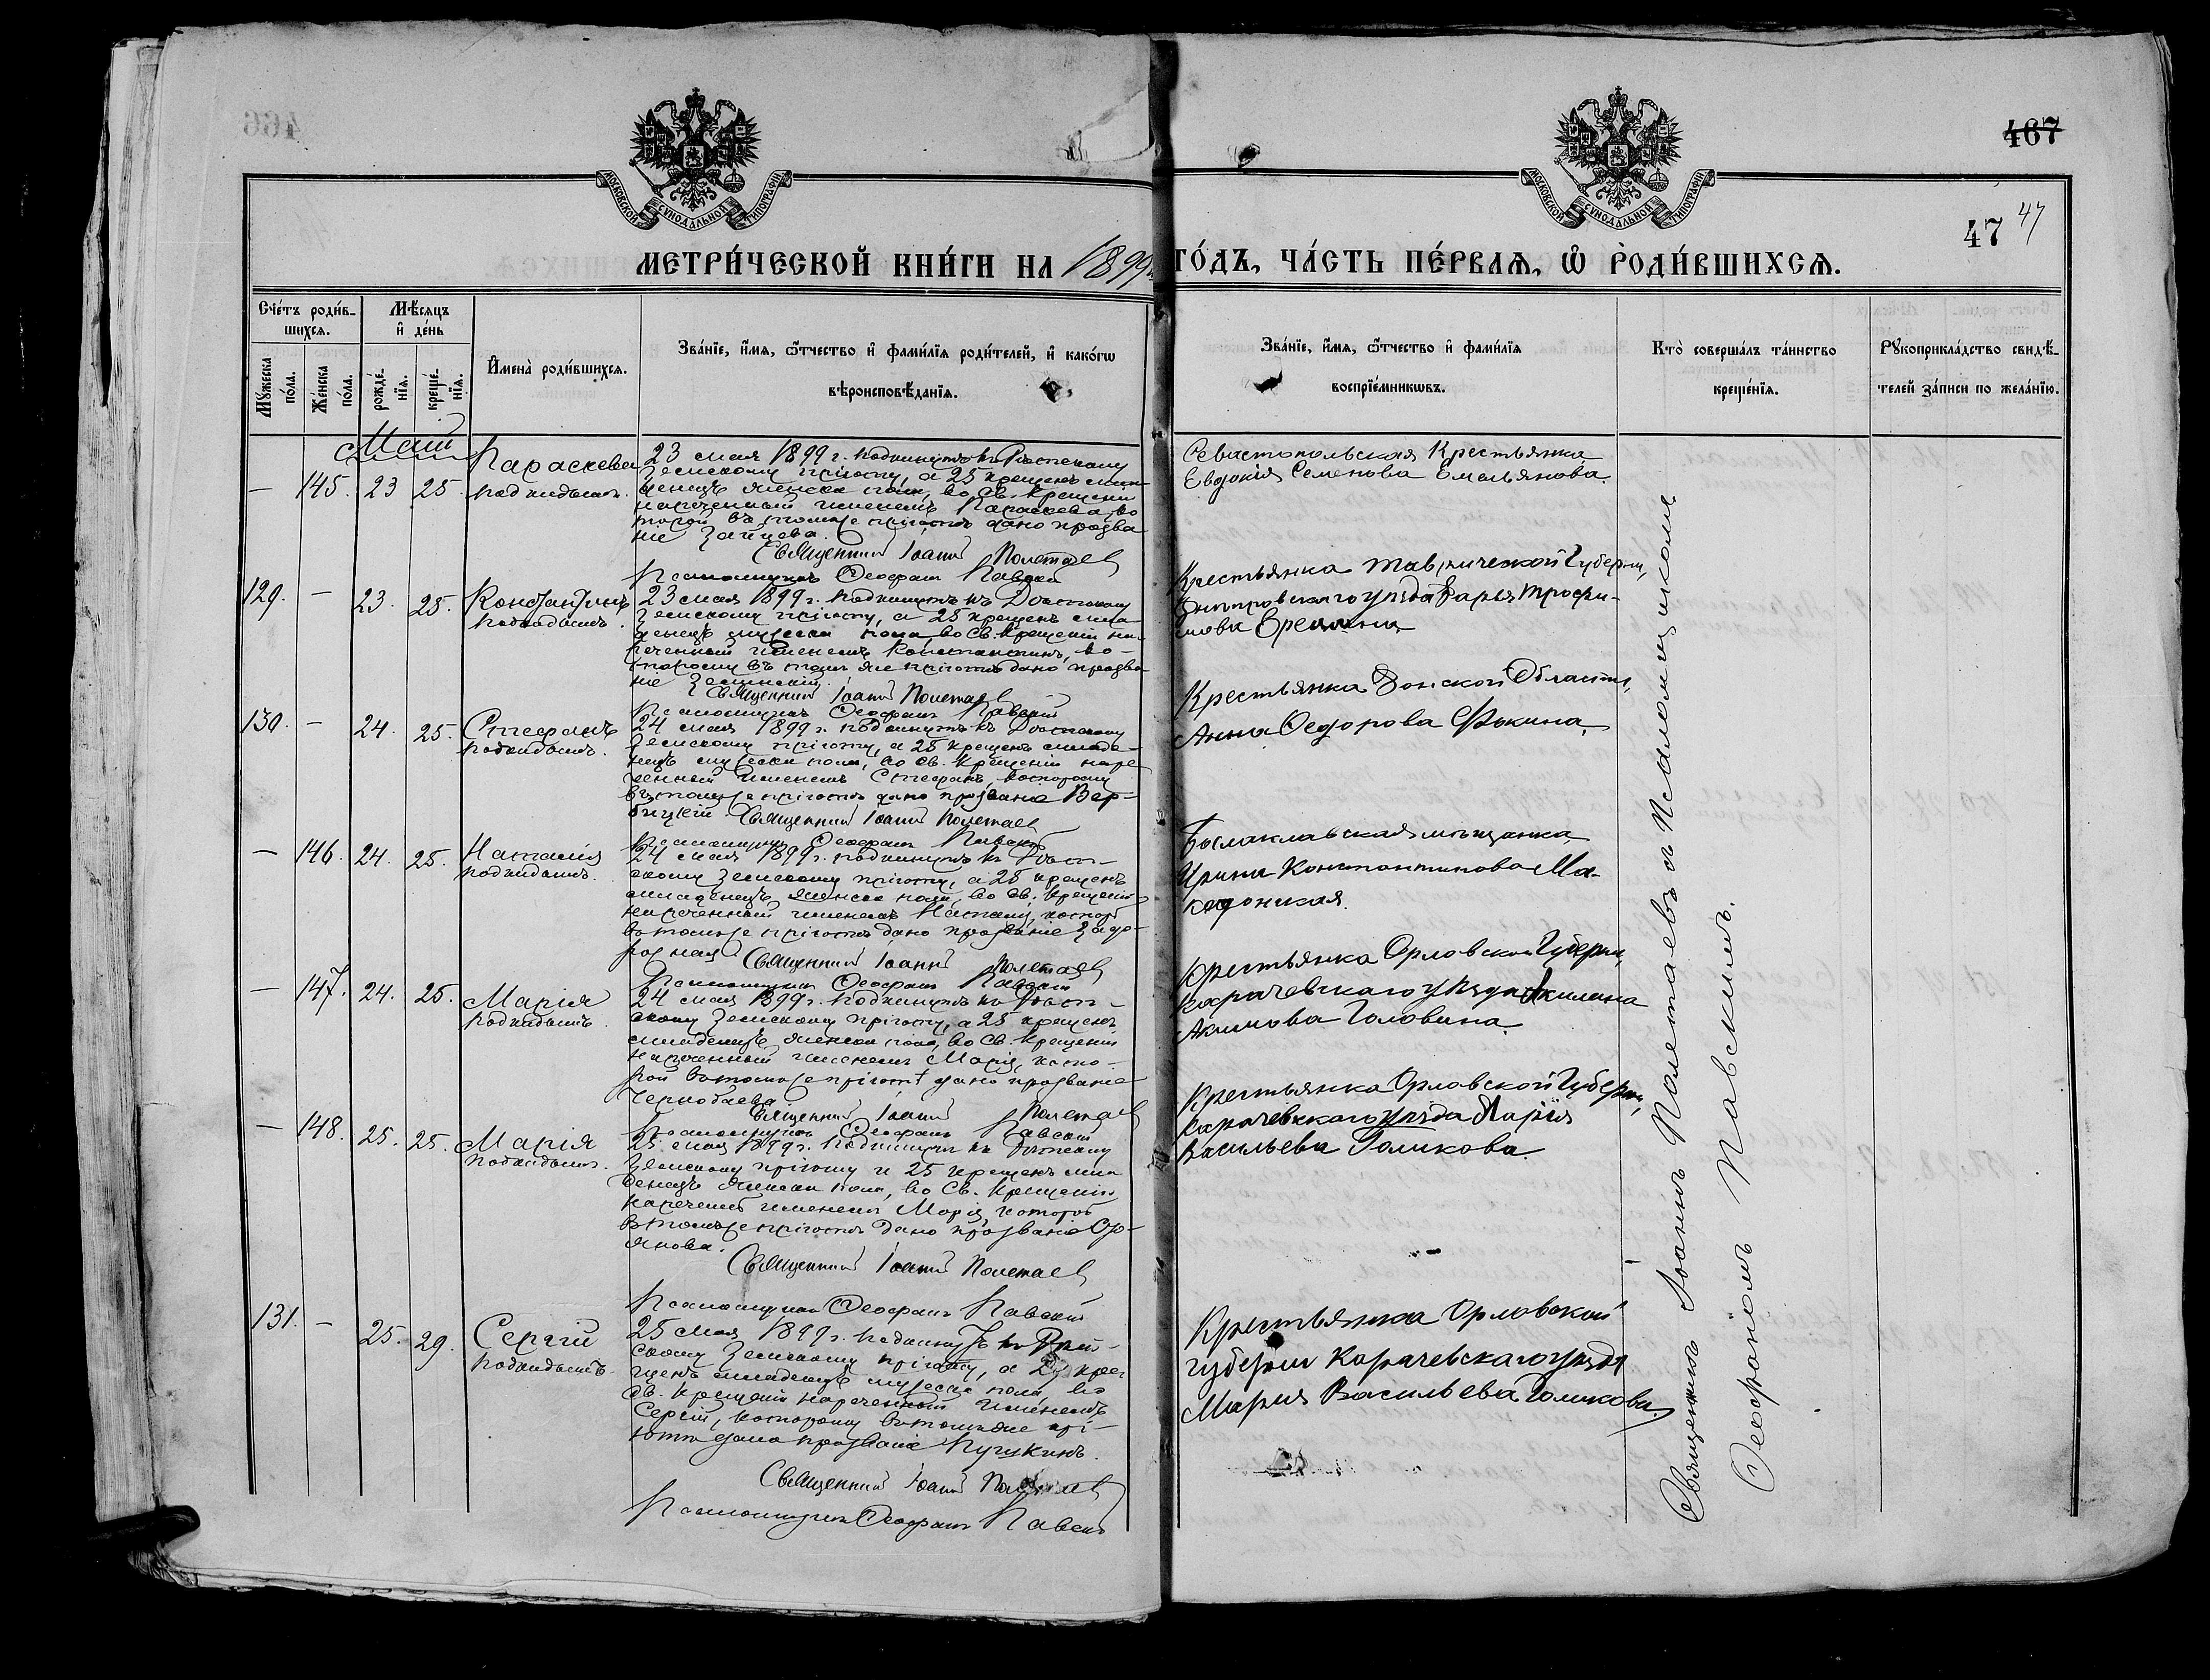 466
467
47 47
МОСКОВСКОЙ СУНОДАЛЬНОЙ ТИПОГРАФІИ
МОСКОВСКОЙ СУНОДАЛЬНОЙ ТИПОГРАФІИ
МЕТРИ́ЧЕСКОЙ КНИ́ГИ НА 1899 ГО́ДЪ, ЧА́СТЬ ПЕ́РВАѦ, Ѡ҆ РОДИ́ВШИХСѦ.
Сче́тъ роди́в-
шихсѧ.
Мѣ́сѧцъ
и҆ де́нь
Мꙋ́жеска по́ла.
Же́нска по́ла.
рожде́-
нїѧ.
креще́-
нїѧ.
И҆мена̀ роди́вшихсѧ.
Зва́нїе, и҆́мѧ, ѻ҆́тчество и҆ фами́лїѧ роди́телей, и҆ како́гѡ
вѣроисповѣ́данїѧ.
Зва́нїе, и҆́мѧ, ѻ҆́тчество и҆ фами́лїѧ
воспрїе́мникѡвъ.
Кто̀ соверша́лъ та́инство
креще́нїѧ.
Рꙋкоприкла́дство свидѣ́-
телей за́писи по жела́нїю.
Май
— 145. 23 25. Параскева
подкидышъ.
23 мая 1899 г. подкинутъ къ
Земскому пріюту, а 25 крещенъ мла-
денецъ женска пола, во Св. Крещеніи
нареченный именемъ Параскева, ко
торой въ томъ же пріютѣ дано прозва
ніе Зайцева.
Священникъ Іоаннъ Полетаевъ
Псаломщикъ Ѳеофанъ Павскій
Севастопольская Крестьянка
Евдокія Семенова Емельянова.
129. — 23. 25. Константинъ
подкидышъ.
23 мая 1899 г. подкинутъ къ
Земскому пріюту, а 25 крещенъ мла
денецъ мужеска пола, во Св. Крещеніи на-
реченный именемъ Константинъ, ко-
торому въ томъ же пріютѣ дано прозва
ніе
Священникъ Іоаннъ Полетаевъ
Псаломщикъ Ѳеофанъ Павскій
Крестьянка Таврической Губерніи,
Днѣпровскаго уѣзда Дарья Трофи-
мова
130. — 24. 25. Стефанъ
подкидышъ.
24 мая 1899 г. подкинутъ къ
Земскому пріюту, а 25 крещенъ младе-
нецъ мужеска пола, во Св. Крещеніи наре
ченный именемъ Стефанъ, которому
въ томъ же пріютѣ дано прозваніе Вер-
бицкій. Священникъ Іоаннъ Полетаевъ
Псаломщикъ Ѳеофанъ Павскій
Крестьянка Донской Области,
Анна Ѳедорова Фокина.
— 146. 24. 25. Наталія
подкидышъ.
24 мая 1899 г. подкинутъ къ
скому Земскому пріюту, а 25 крещенъ
младенецъ женска пола, во Св. Крещеніи
нареченный именемъ Наталія, которой
въ томъ же пріютѣ дано прозваніе Задо-
рожная. Священникъ Іоаннъ Полетаевъ
Псаломщикъ Ѳеофанъ Павскій
Балаклавская мѣщанка
Ирина Константинова Ма-
кедонская.
— 147. 24. 25. Марія
подкидышъ.
24 мая 1899 г. подкинутъ къ
скому Земскому пріюту, а 25 крещенъ
младенецъ женска пола, во Св. Крещеніи
нареченный именемъ Марія, кото-
рой въ томъ же пріютѣ дано прозваніе
Чернобаева
Священникъ Іоаннъ Полетаевъ
Псаломщикъ Ѳеофанъ Павскій
Крестьянка Орловской Губерніи,
Карачевскаго уѣзда Акилина
Акимова Головина.
— 148. 25. 25. Марія
подкидышъ.
25 мая 1899 г. подкинутъ къ
Земскому пріюту и 25 крещенъ мла
денецъ женска пола, во Св. Крещеніи
нареченъ именемъ Марія, которой
въ томъ же пріютѣ дано прозваніе
Священникъ Іоаннъ Полетаевъ
Псаломщикъ Ѳеофанъ Павскій
Крестьянка Орловской Губерніи,
Карачевскаго уѣзда Марія
Васильева Голикова.
131. — 25. 29. Сергій
подкидышъ.
25 мая 1899 г. подкинутъ къ
скому Земскому пріюту, а 29 кре
щенъ младенецъ мужеска пола, во
Св. Крещеніи нареченный именемъ
Сергій, которому въ томъ же прі-
ютѣ дано прозваніе Пушкинъ.
Священникъ Іоаннъ Полетаевъ
Псаломщикъ Ѳеофанъ Павскій
Крестьянка Орловской
губерніи Карачевскаго уѣзда
Марія Васильева Голикова.
Священникъ Іоаннъ Полетаевъ съ Псаломщикомъ
Ѳеофаномъ Павскимъ.